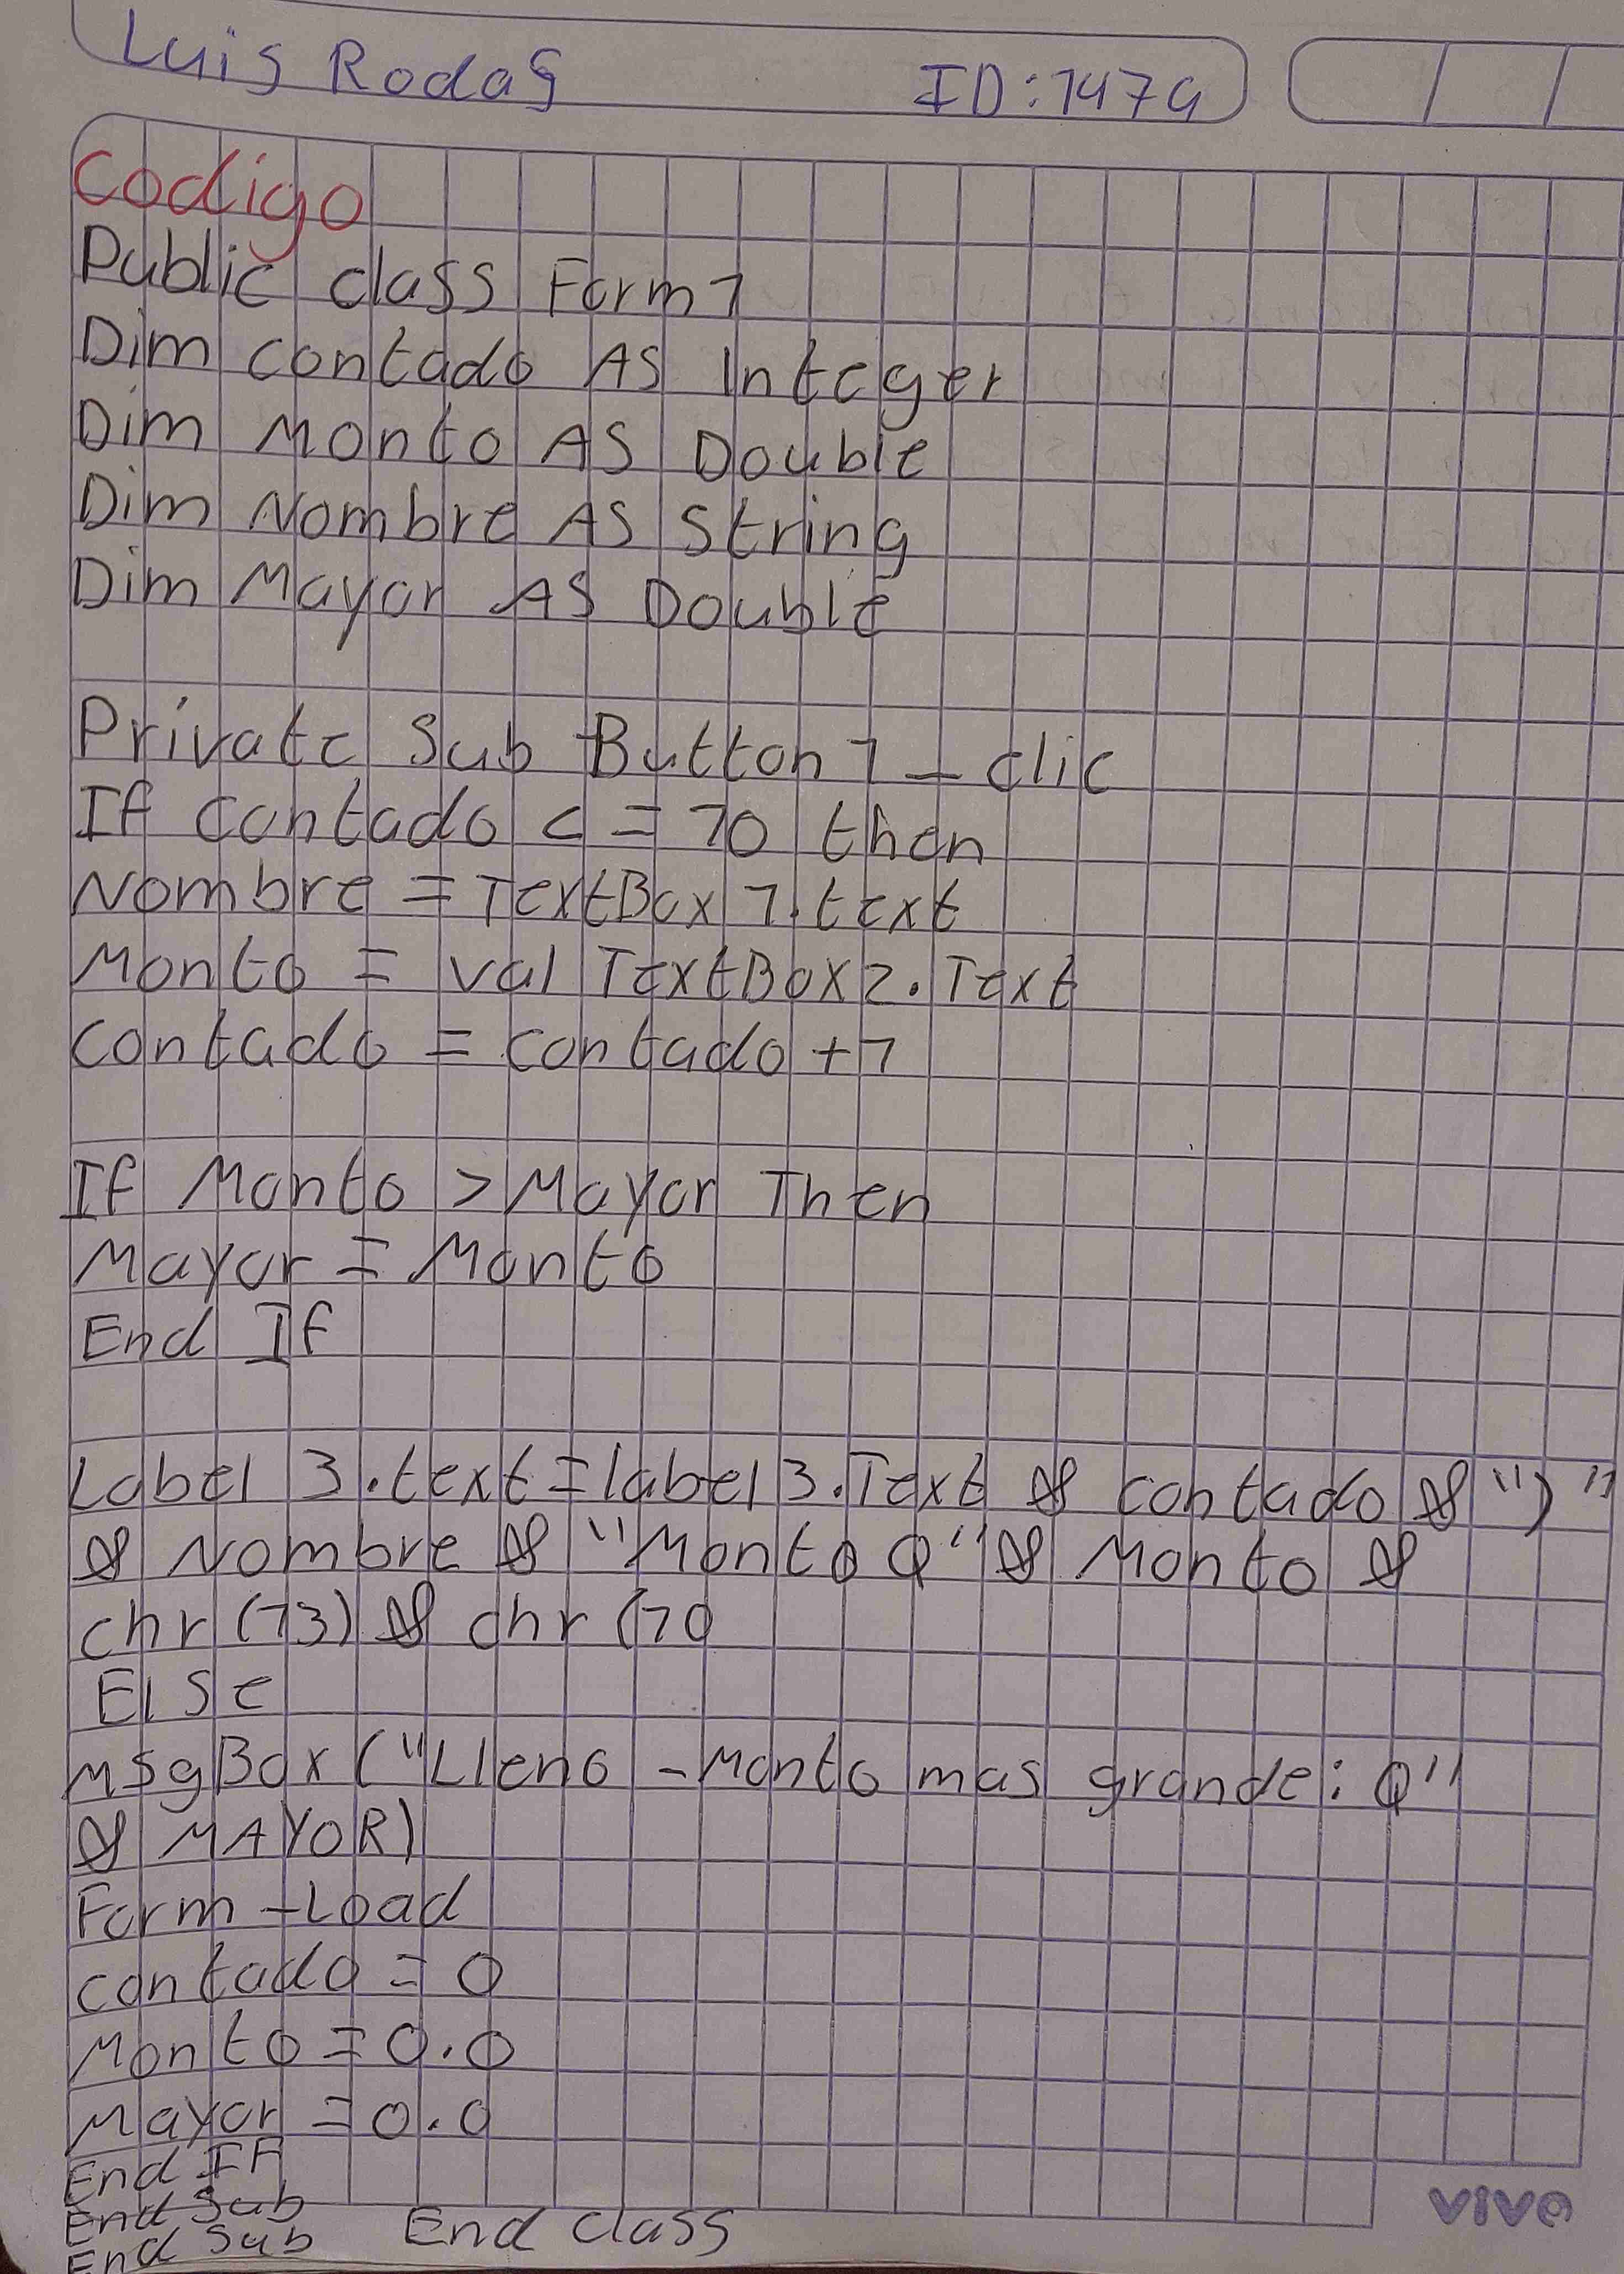 Luis Rodas ID: 1479
Codigo
Public class Form1
Dim contado AS Integer
Dim Monto AS Double
Dim Nombre AS String
Dim Mayor AS Double
Private Sub Button1_clic
If contado <= 10 then
Nombre = TextBox1.text
Monto = val TextBox2.Text
contado = contado +1
If Monto > Mayor Then
Mayor = Monto
End If
Label 3.text = label3.Text & contado & ") "
& Nombre & "Monto Q" & Monto &
chr (13) & chr (10
Else
MsgBox ("Lleno - Monto mas grande: Q"
& MAYOR)
Form-Load
contado = 0
Monto = 0.0
Mayor = 0.0
End IF
End Sub
End Sub End class
vivo